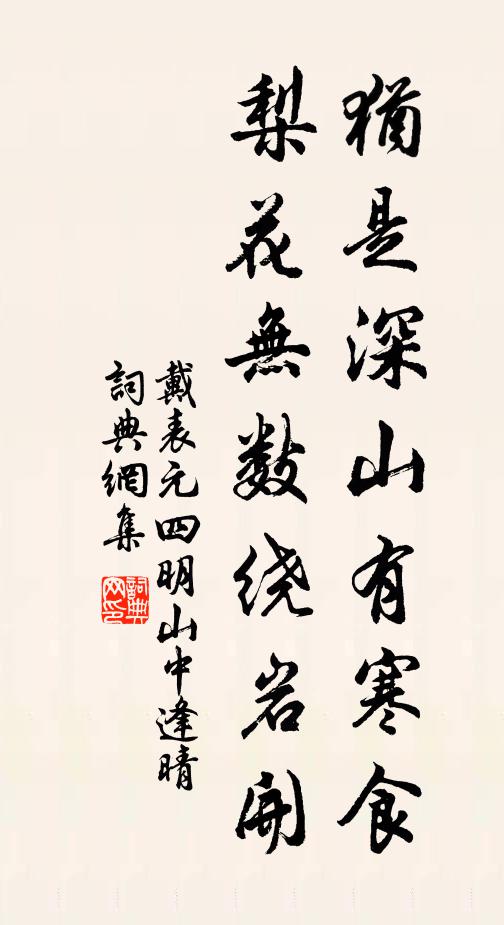 猶是深山有寒食
梨花無数绕岩開
戴表元四明山中逢晴
詞典網集
詞典
网印